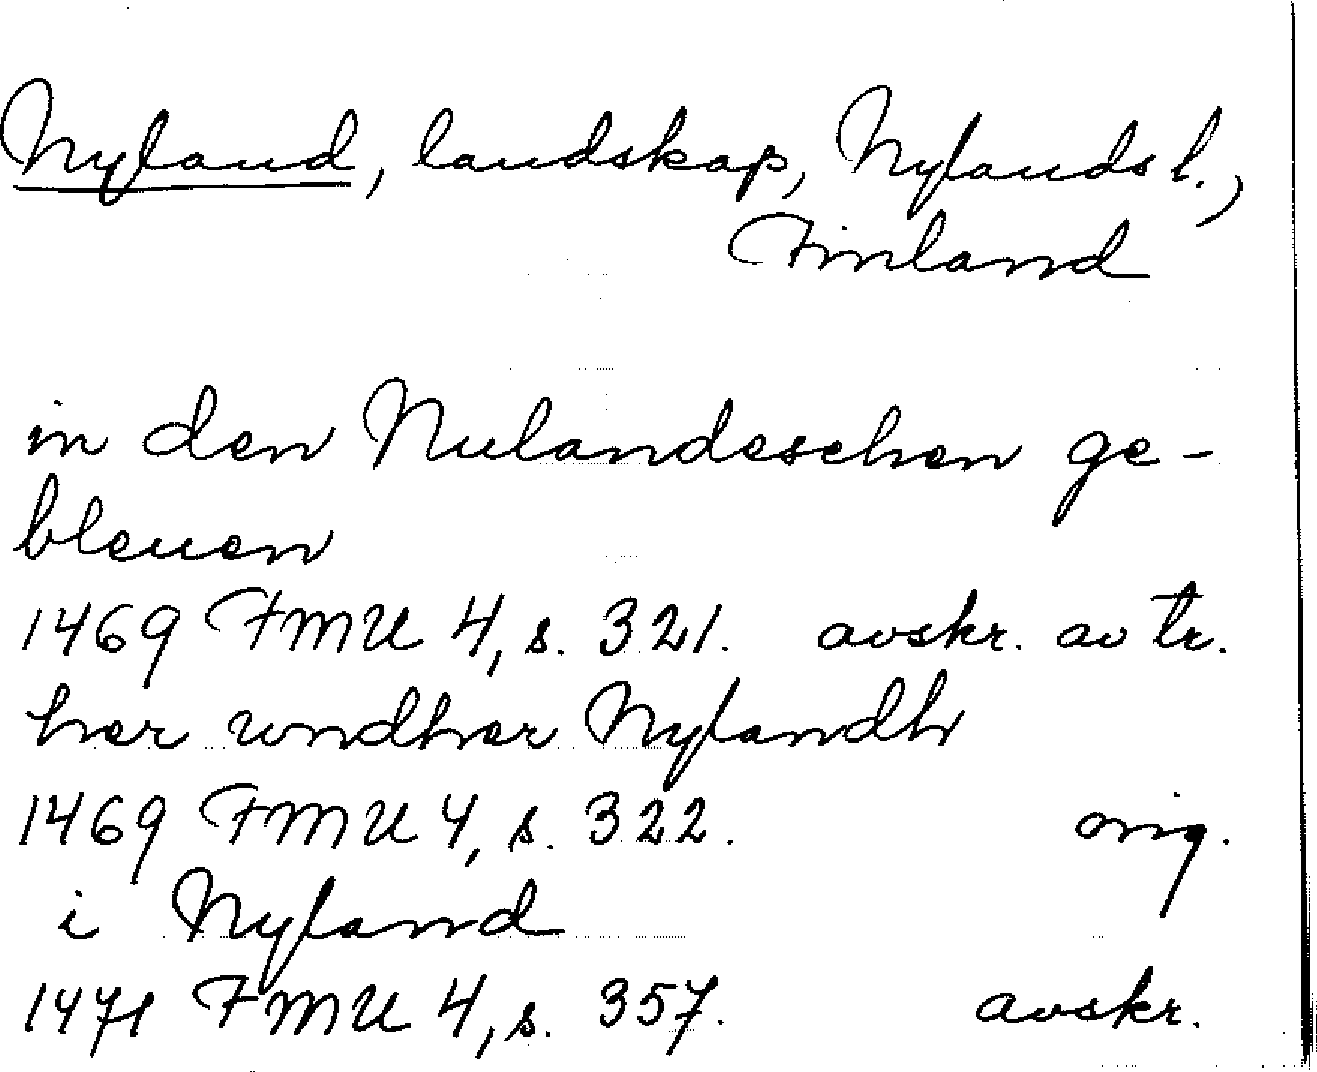 Nyland, landskap, Nylands l.,
Finland
in den Nulandeschen ge-
bleuen
1469 FMU 4, s. 321. avskr. av tr.
her wndher Nylandh
1469 FMU 4, s. 322. orig.
i Nyland
1471 FMU 4, s. 357. avskr.